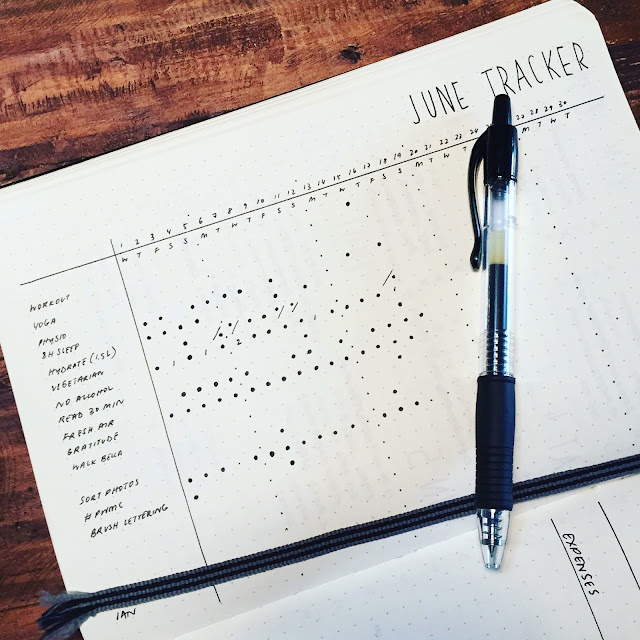 JUNE TRACKER
1 2 3 4 5 6 7 8 9 10 11 12 13 14 15 16 17 18 19 20 21 22 23 24 27 28 29 30
W T F S S M T W T F S S M T W T F S S M T W T M T W T
WORKOUT
YOGA
PHYSIO
8H SLEEP
HYDRATE (1.5L)
VEGETARIAN
NO ALCOHOL
READ 30 MIN
FRESH AIR
GRATITUDE
WALK BELLA
SORT PHOTOS
#PWMC
BRUSH LETTERING
EXPENSES
IAN